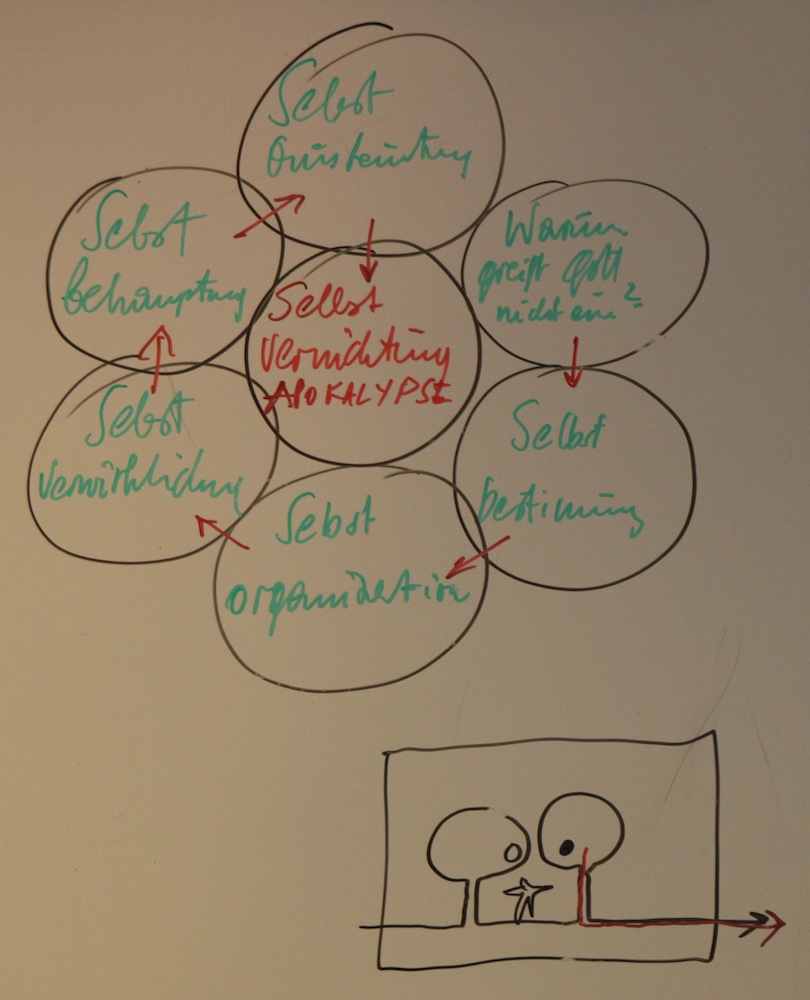 Selbst
Ausbeutung
Selbst
behauptung
Warum
greift Gott
nicht ein?
Selbst
Vernichtung
APOKALYPSE
Selbst
verwirklichung
Selbst
bestimmung
Selbst
organisation